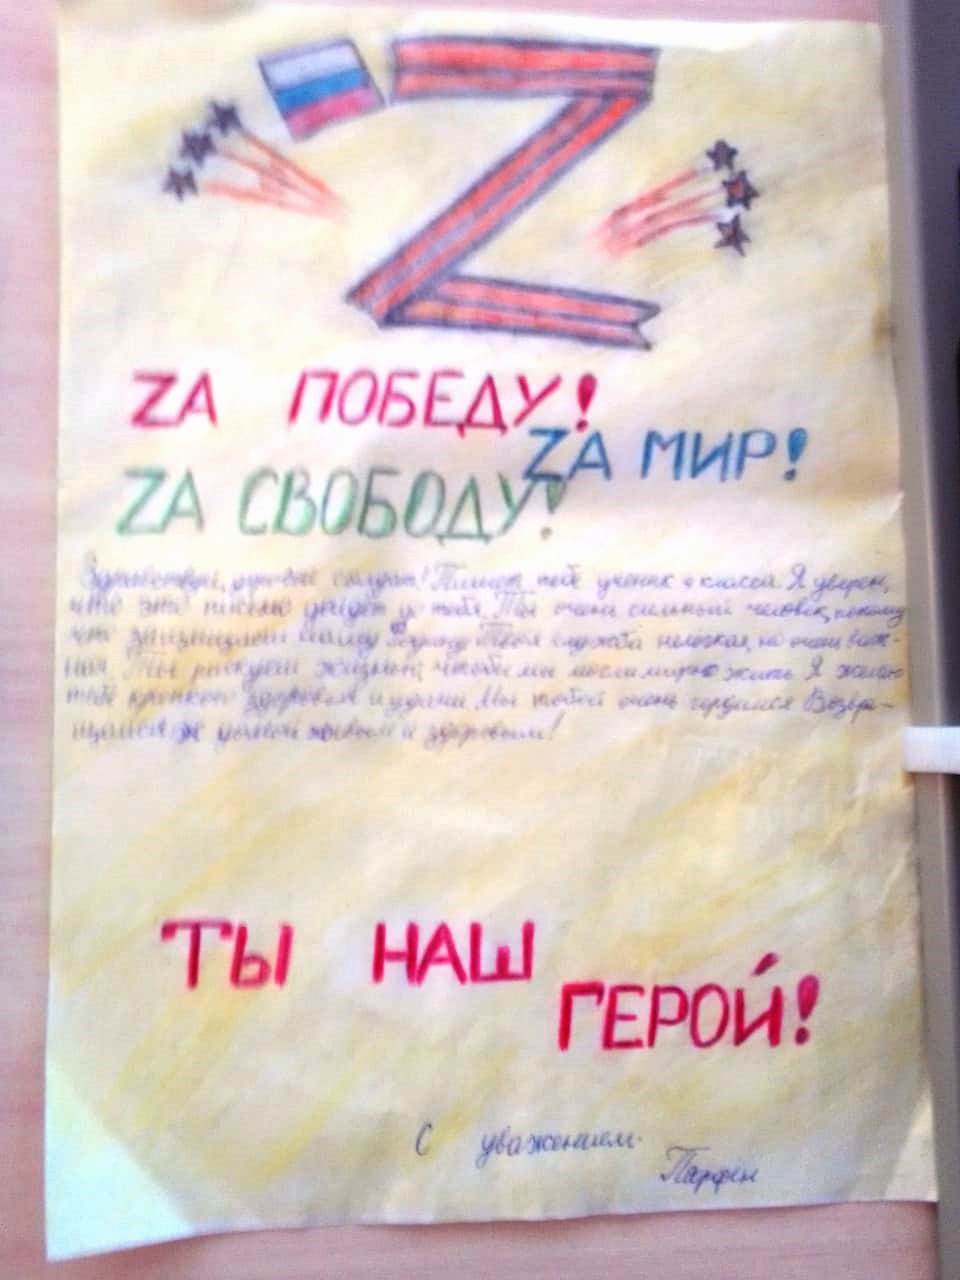 ZА ПОБЕДУ!
ZА МИР!
ZА СВОБОДУ!
Здравствуй, дорогой солдат! Пишет тебе ученик 4 класса. Я уверен,
что это письмо дойдёт до тебя. Ты очень сильный человек, потому
что защищаешь нашу Родину. Твоя служба нелегкая, но очень важ-
ная. Ты рискуешь жизнью, чтобы мы могли мирно жить. Я желаю
тебе крепкого здоровья и удачи. Мы тобой очень гордимся. Возвра-
щайся домой живым и здоровым!
ТЫ НАШ
ГЕРОЙ!
С уважением
Парфён